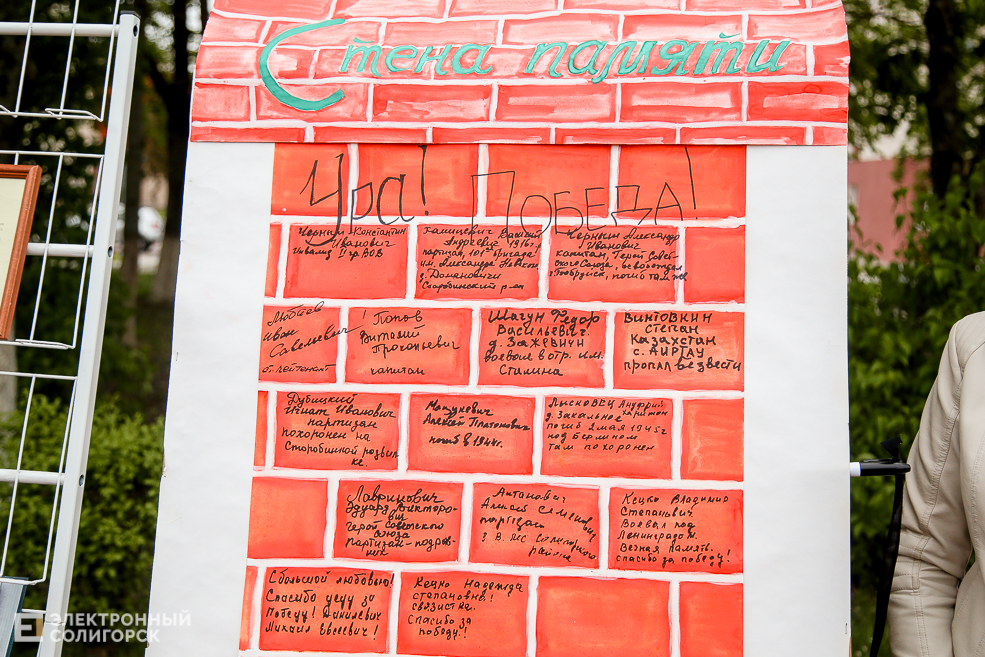 Стена памяти
Ура! ПОБЕДА!
Черныш Константин
Иванович
Инвалид II гр. ВОВ
Василий
Андреевич 1916 г.
партизан, 101ая бригада
им. Александра Невского
д. Домановичи
Старобинский р-он
Черныш Александр
Иванович
капитан, Герой Совет-
ского Союза, освобождал
г. Бобруйск, погиб там же
Любаев
Иван
Савельевич!
ст. лейтенант
Попов
Виталий
Прокопьевич
капитан
Шагун Федор
Васильевич.
д. Зажевичи
воевал в отр. им.
Сталина
ВИНТОВКИН
СТЕПАН
КАЗАХСТАН
с. АИРТАУ
пропал без вести
Дубицкий
Игнат Иванович
партизан
похоронен на
Старобинской развил-
ке.
Мацукевич
Алексей Платонович
погиб в 1944г.
Лысковец Ануфрий
д. Закальное капитан
погиб 2 мая 1945г
под Берлином
там похоронен
Лавринович
Эдуард Викторо-
вич
Герой Советского
Союза
партизан-подрыв-
ник
Антонович
Алексей Семенович
партизан
Солигорского
района
Кецко Владимир
Степанович
Воевал под
Ленинградом.
Вечная память.
спасибо за победу!
С большой любовью!
Спасибо деду за
Победу! Данилевич
Михаил Евсеевич!
Кецко Надежда
степановна!
связистка.
Спасибо за
победу!!
ЭЛЕКТРОННЫЙ
СОЛИГОРСК